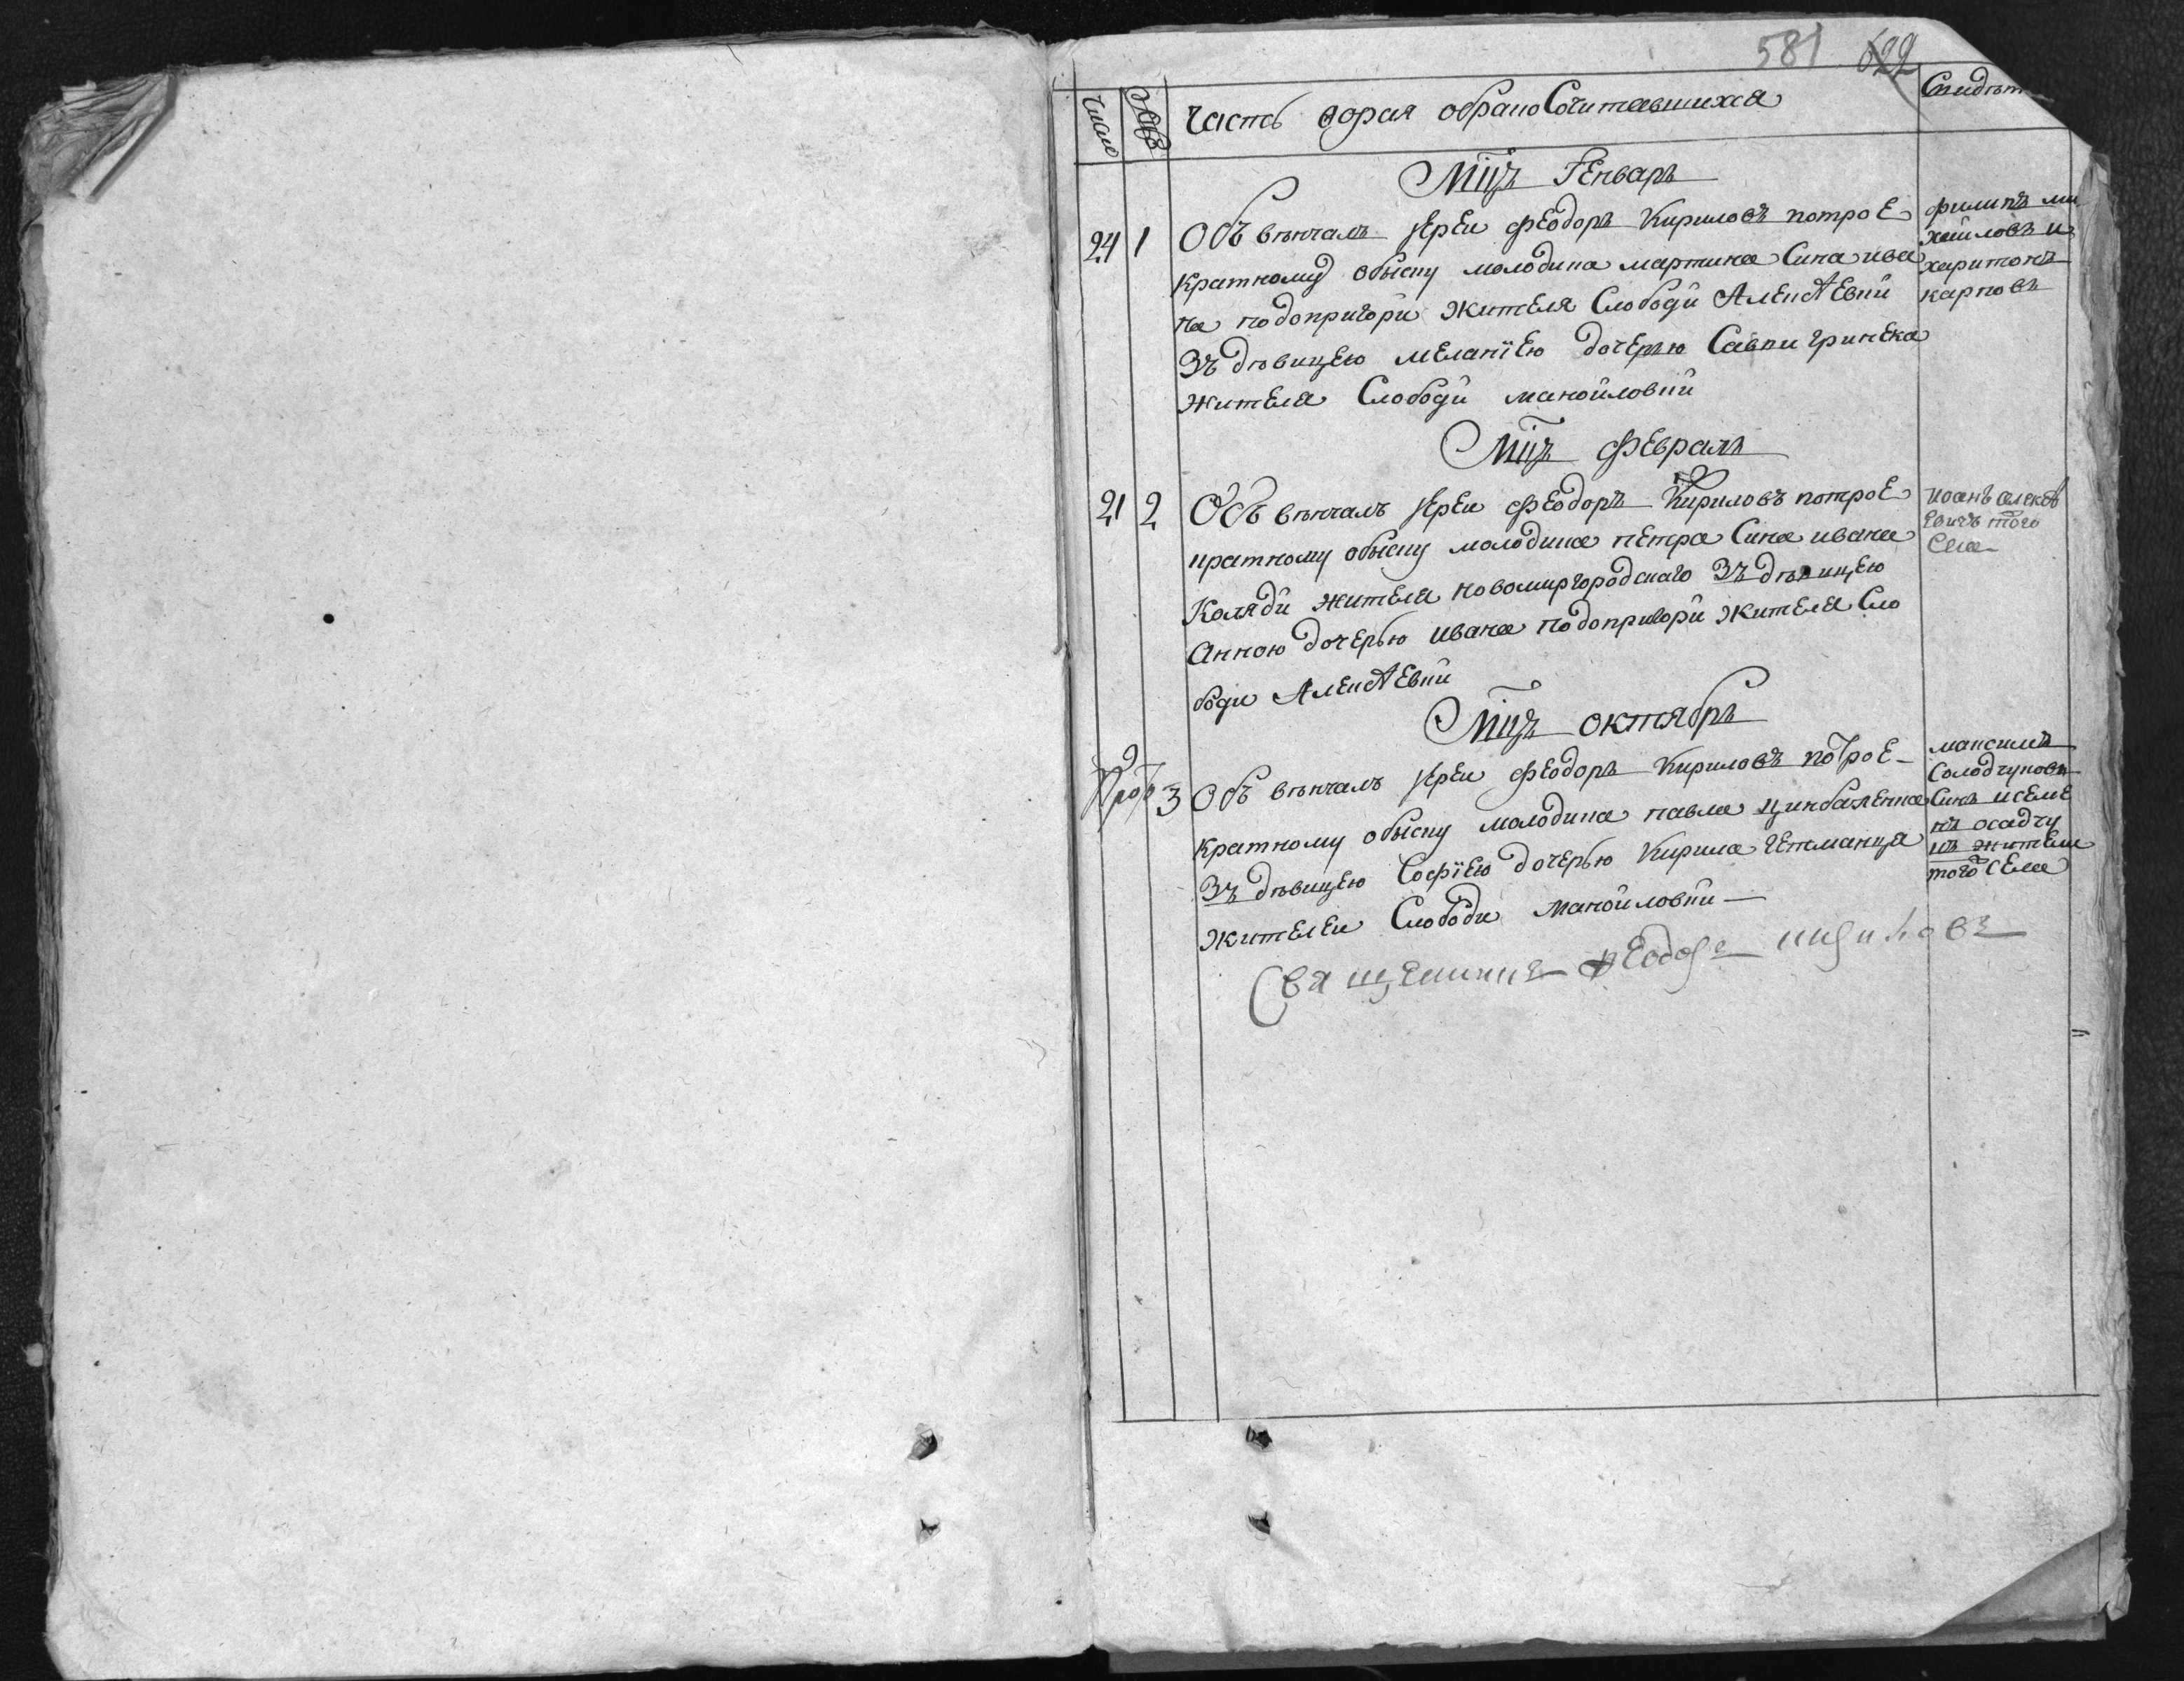 581 622
Число
Часть ворая обракоСочитавшихся
Свидѣт
Мцъ Генварь
24 1
Обвѣнчалъ Іереи Феодоръ Кириловъ потрое
кратному обыску молодика мартина Сина ива
на подопригори жителя Слободи Алексѣевки
Зъ дѣвицею меланіею дочерью Савки гринека
жителя Слободи манойловки
филипъ ми
хайловъ и
харитонъ
карповъ
Мцъ Февраль
21 2
Обвѣнчалъ Іереи Феодоръ Кириловъ потрое
кратному обыску молодика петра Сина ивана
Коляди жителя новомиргородскаго Зъ дѣвицею
Анною дочерью ивана подопригори жителя Сло
боди Алексѣевки
иоанъ
того
Села
Мцъ октябрь
3
Обвѣнчалъ Іереи Феодоръ Кириловъ потрое
кратному обыску молодика павла цинбаленка
Зъ дѣвицею Софіею дочерью Кирила гетманца
жителеи Слободи манойловки
максимъ
Солодчуковъ
Синъ исеме
нъ осадчу
къ жители
того Села
Священникъ Феодоръ Кириловъ